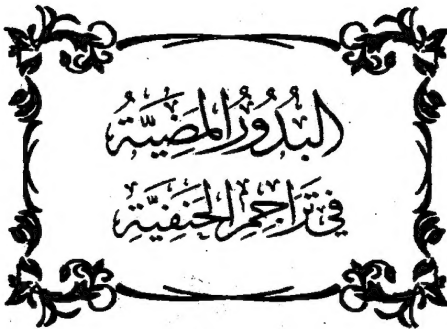 البُدُورُ المَضِيَّةُ
في تَرَاجِمِ الحَنَفِيَّةِ